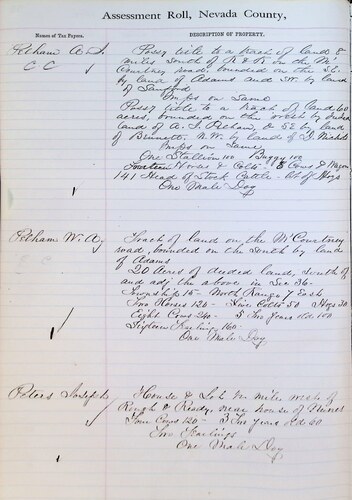 Assessment Roll, Nevada County,
Names of Tax Payers.
DESCRIPTION OF PROPERTY.
Pelham A. J. Possy title to a tract of land 8
C C miles South of R & R on the Mc
Courtney road, bounded on the
by land of Adams and S.W. by land
of Sanford
Imps on Same
Possy title to a tract of land 60
acres, bounded on the west by
land of A. J. Pelham, & SE by land
of Bennett N.W. by lands of
Imps on Same
One Stallion 100 Buggy 100
Fourteen Horses & Colts 8 Cows & Wagon
141 Head of Stock Cattle Lot of Hogs
One Male Dog
1
Pelham W. A. Tract of land on the McCourtney
road, bounded on the South by land
of Adams
20 Acres of deeded land, South of
and adj the above in Sec 36-
Township 15- North Range 7 East
Two Horses 120 - Five Colts 50 Hogs 30
Eight Cows 240 - 5 Two years old 150
Sixteen Yearlings 160-
One Male Dog
1
Peters Joseph House & Lot 1/2 mile west of
Rough & Ready, near house of
Four Cows 120 - 3 Two years old 60
Two Yearlings
One Male Dog
1